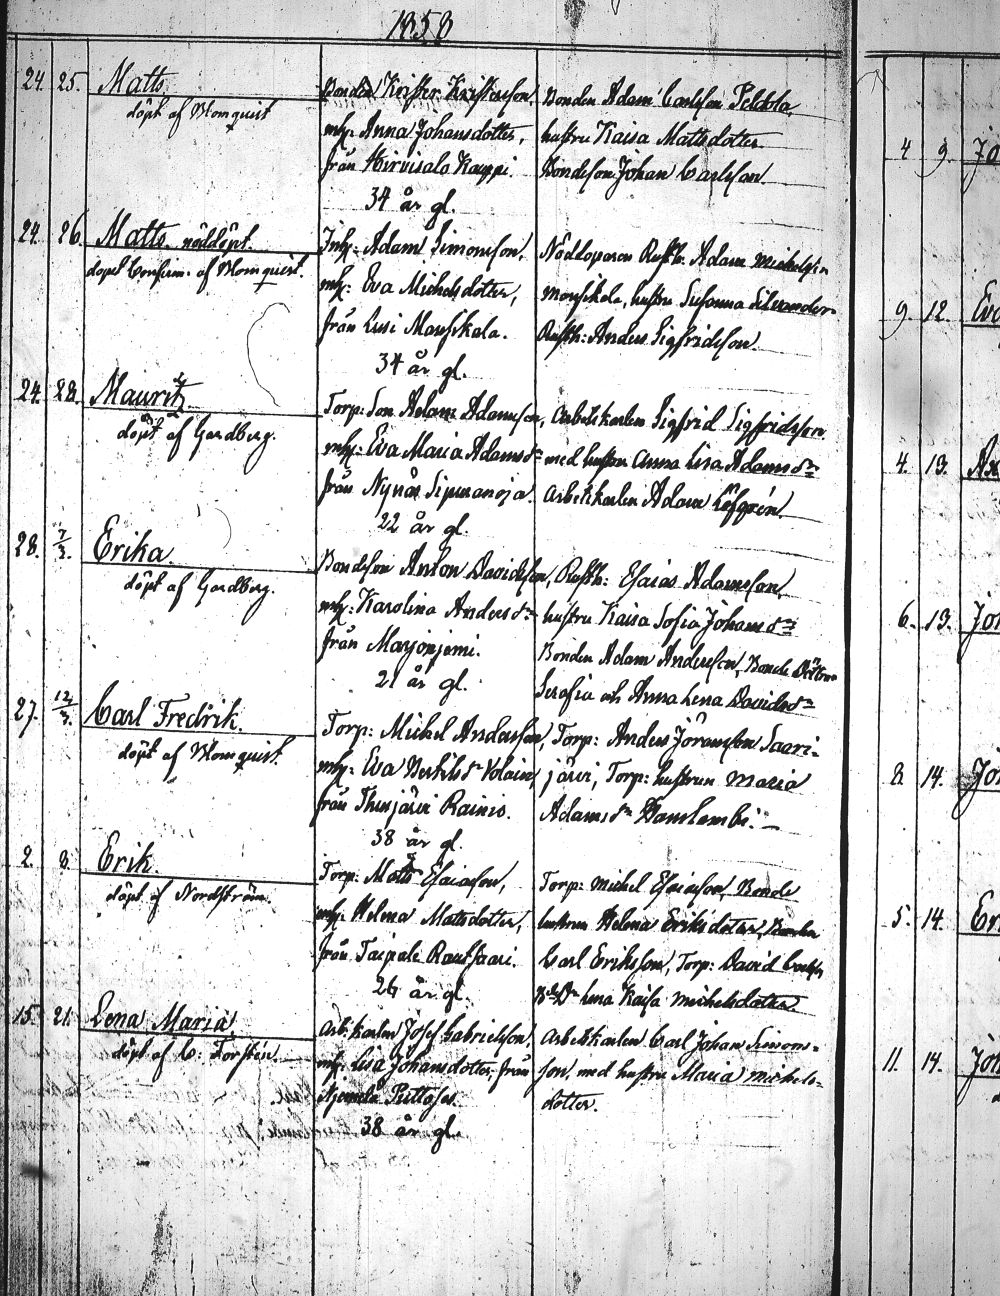 1858
24. 25. Matts
döpt af Blomquist
Bonden Krister Kristersson,
mh: Anna Johansdotter,
från Hirvisalo Kauppi.
34 år gl.
Bonden Adam Carlsson Peldola,
hustru Kaisa Mattsdotter
Bondeson Johan Carlsson.
24. 26. Matts nöddöpt.
döpt Confirm. af Blomquist.
Inh: Adam Simonsson,
mh: Eva Michelsdotter,
från Lusi Mansikala.
34 år gl.
Nöddoparen Rusth: Adam Michelss:n
Mansikala, hustru Susanna Silvander
Rusth: Anders Sigfridsson.
24. 28. Mauritz
döpt af Gardberg.
Torp: Son Adam Adamsson,
mh: Eva Maria Adamsd:r
från Nynäs Sipuranoja.
22 år gl.
Arbetskarlen Sigfrid Sigfridsson
med hustru Anna Lisa Adamsd:r
Arbetskarlen Adam Löfgrén.
28. 7/3. Erika
döpt af Gardberg.
Bondeson Anton Davidsson,
mh: Karolina Andersd:r
från Marjoniemi.
21 år gl.
Rusth: Esaias Adamsson,
hustru Kaisa Sofia Johansd:r
Bonden Adam Andersson, Bonde Döttrar
Serafia och Anna Lena Davidsd:r
27. 12/3. Carl Fredrik.
döpt af Blomquist.
Torp: Michel Andersson,
mh: Eva Bertilsd:r Kolain,
från Thusjärvi Rainio.
38 år gl.
Torp: Anders Jöransson Saari-
järvi, Torp: hustrun Maria
Adamsd:r Hanslembi. -
2. 8. Erik.
döpt af Nordström.
Torp: Matts Esaiasson,
mh: Helena Mattsdotter,
från Taipale Rautsaari.
26 år gl.
Torp: Michel Esaiasson, Bonde
hustrun Helena Eriksdotter, Bonden
Carl Eriksson, Torp: David Carlss:
B:d:r Lena Kaisa Michelsdotter.
15. 21. Lena Maria
döpt af C: Forstén.
Arb:karlen Josef Gabrielsson,
mh: Lisa Johansdotter, från
38 år gl.
Arbetskarlen Carl Johan Simons-
son, med hustru Maria Michels-
dotter.
4 9.
9. 12.
4. 13.
6. 13.
8. 14.
5. 14.
11. 14.